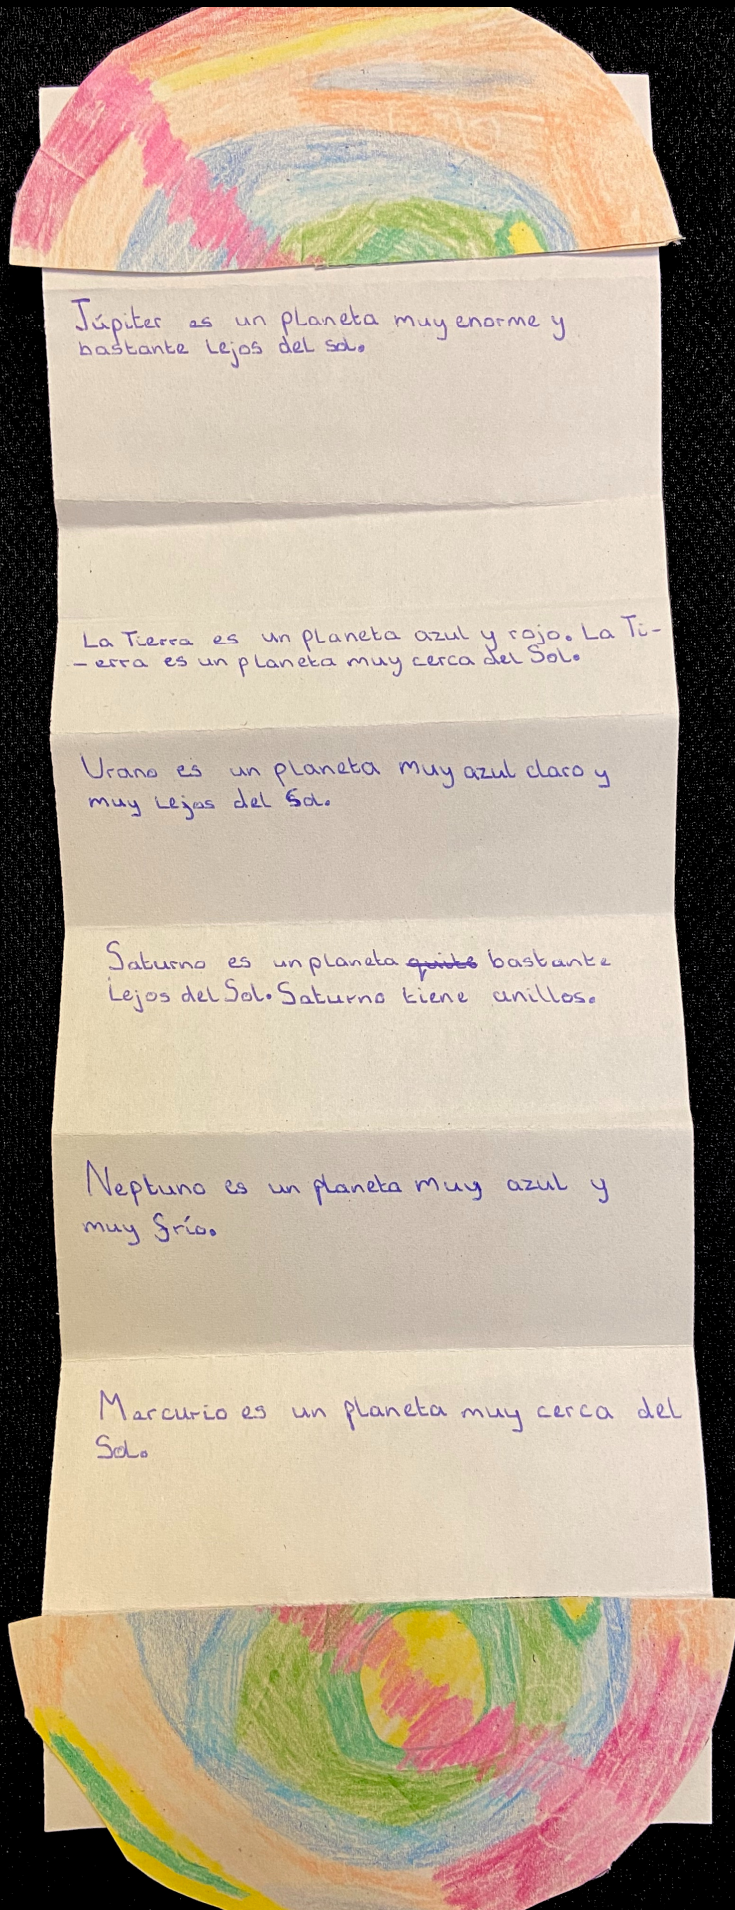 Júpiter es un planeta muy enorme y
bastante lejos del sol.
La Tierra es un planeta azul y rojo. La Ti-
- erra es un planeta muy cerca del Sol.
Urano es un planeta muy azul claro y
muy lejos del Sol.
Saturno es un planeta quite bastante
lejos del Sol. Saturno tiene anillos.
Neptuno es un planeta muy azul y
muy frío.
Marcurio es un planeta muy cerca del
Sol.